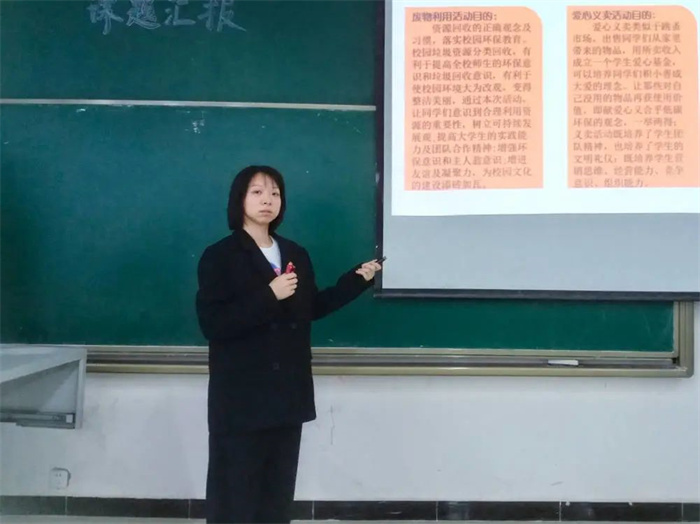 课题汇报
废物利用活动目的：
资源回收的正确观念及
习惯，落实校园环保教育。
校园垃圾资源分类回收，有
利于提高全校师生的环保意
识和垃圾回收意识，有利于
使校园环境大为改观，变得
整洁美丽，通过本次活动，
让同学们意识到合理利用资
源的重要性，树立可持续发
展观，提高大学生的实践能
力及团队合作精神；增强环
保意识和主人翁意识，增进
友谊及凝聚力，为校园文化
的建设添砖加瓦。
爱心义卖活动目的：
爱心义卖类似于跳蚤
市场，出售同学们从家里
带来的物品，用所卖收入
成立一个学生爱心基金，
可以培养同学们积小善成
大爱的理念，让那些对自
己没用的物品再获使用价
值，即献爱心又合乎低碳
环保的观念，一举两得。
义卖活动既培养了学生团
队精神，也培养了学生的
文明礼仪；既培养学生营
销思维、经营能力、竞争
意识、组织能力。